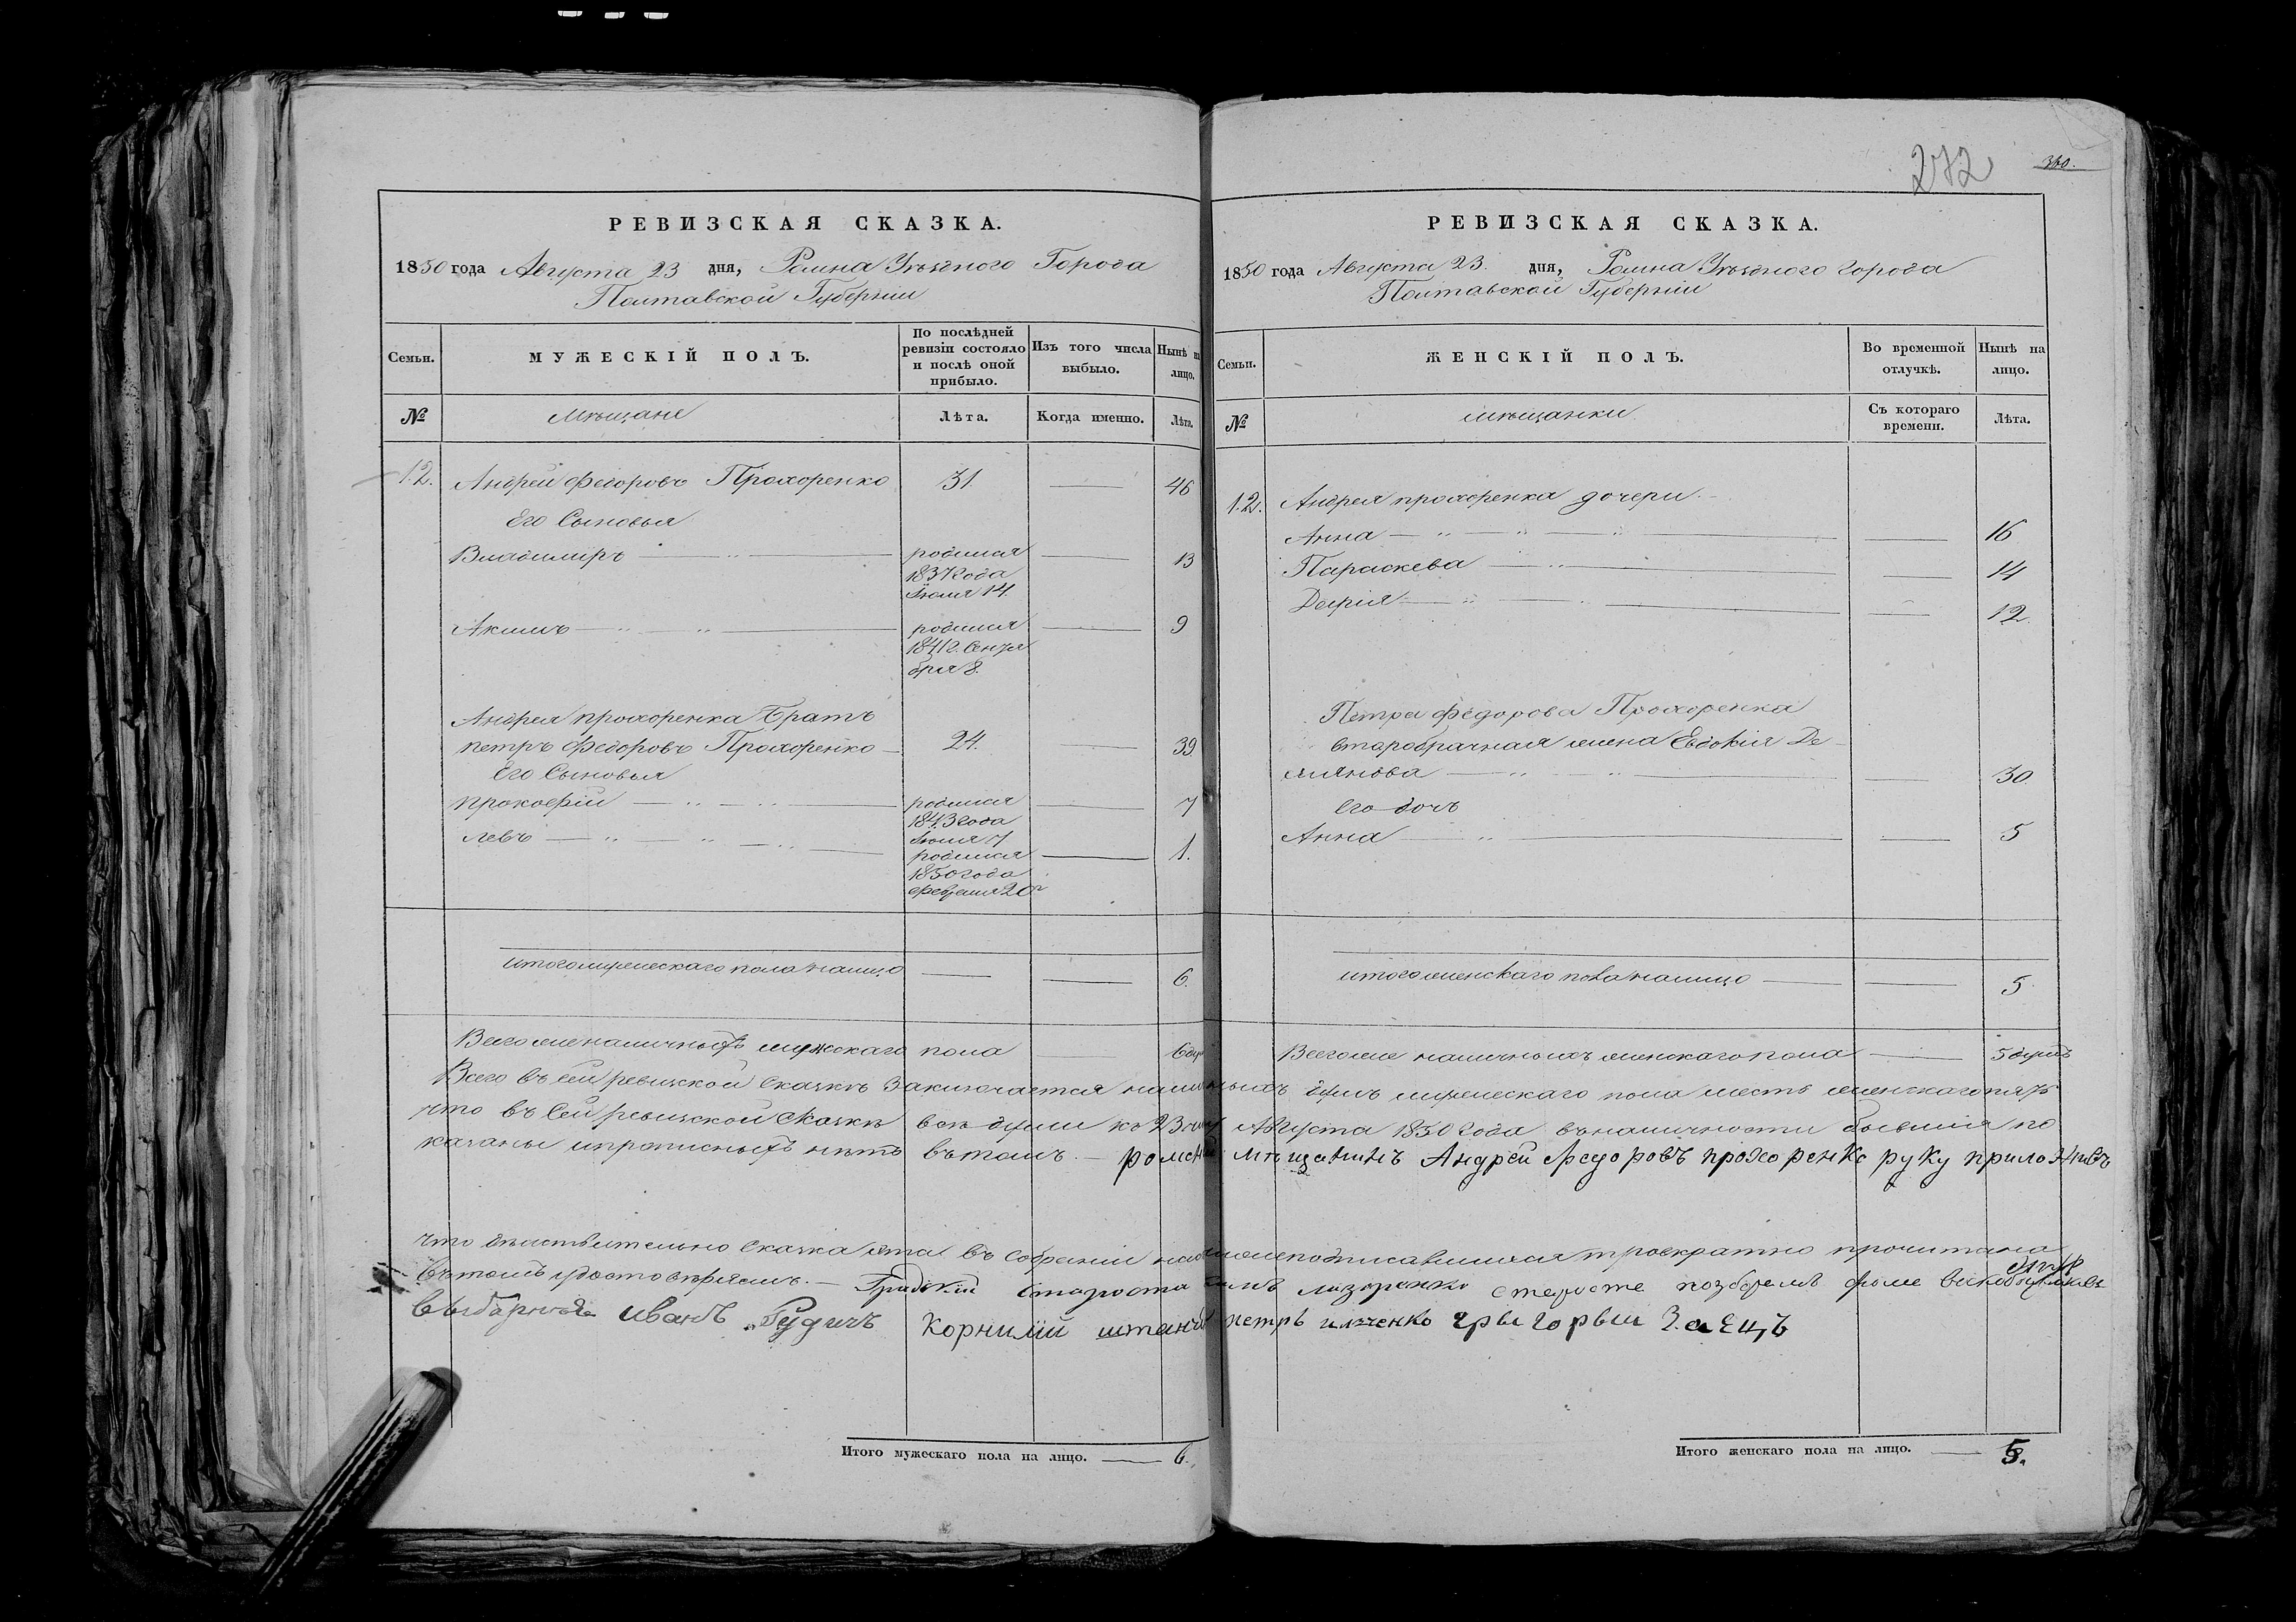 РЕВИЗСКАЯ СКАЗКА.
1850 года Августа 23 дня, Ромна Уѣзднаго Города
Полтавской Губерніи
Семьи.
МУЖЕСКІЙ ПОЛЪ.
По послѣдней ревизіи состояло и послѣ оной прибыло.
Изъ того числа выбыло.
Нынѣ на лицо.
№
Мѣщане
Лѣта.
Когда именно.
Лѣта.
12. Андрей Федоровъ Прохоренко 31 46
Его Сыновья
Владимиръ родился 13
1837 года
Іюля 14.
Акимъ родился 9
1841 г. Сентя
бря 8.
Андрея прохоренка Братъ
петръ Федоровъ Прохоренко 24. 39
Его Сыновья
Прокофій родился 7
1843 года
Іюля 7
левъ родился 1.
1850 года
февраля 20
итого мужескаго пола налицо 6.
Всего же наличныхъ мужскаго пола 6 душ
РЕВИЗСКАЯ СКАЗКА.
1850 года Августа 23. дня, Ромна Уѣзднаго города
Полтавской Губерніи
272
Семьи.
ЖЕНСКІЙ ПОЛЪ.
Во временной отлучкѣ.
Нынѣ на лицо.
№
мѣщанки
Съ котораго времени.
Лѣта.
12. Андрея прохоренка дочери
Анна 16
Параскева 14
Дарія 12
Петра Федорова Прохоренка
второбрачная жена Евдокія Де
миянова 30
Его дочь
Анна 5
итого женскаго пола налицо 5
Всего же наличныхъ женскаго пола 5 душъ
Всего въ сей ревизской Сказкѣ Заключается наличныхъ душъ мужескаго пола шесть женскаго пять
что въ Сей ревизской Сказкѣ всѣ души къ 23 Августа 1850 года въ наличности бывшія по
казаны и прописныхъ нѣтъ въ томъ. — роменскій мѣщанинъ Андрей Федоровъ прохоренко руку приложивъ
что дѣйствительно Сказка эта въ собраніи троекратно прочитана
въ томъ удостовѣряемъ. — Градскій староста
выборныя Иванъ Рудичъ Корнилій петръ илченко грыгорыи Заецъ
Итого мужескаго пола на лицо. 6.
Итого женскаго пола на лицо. 5.